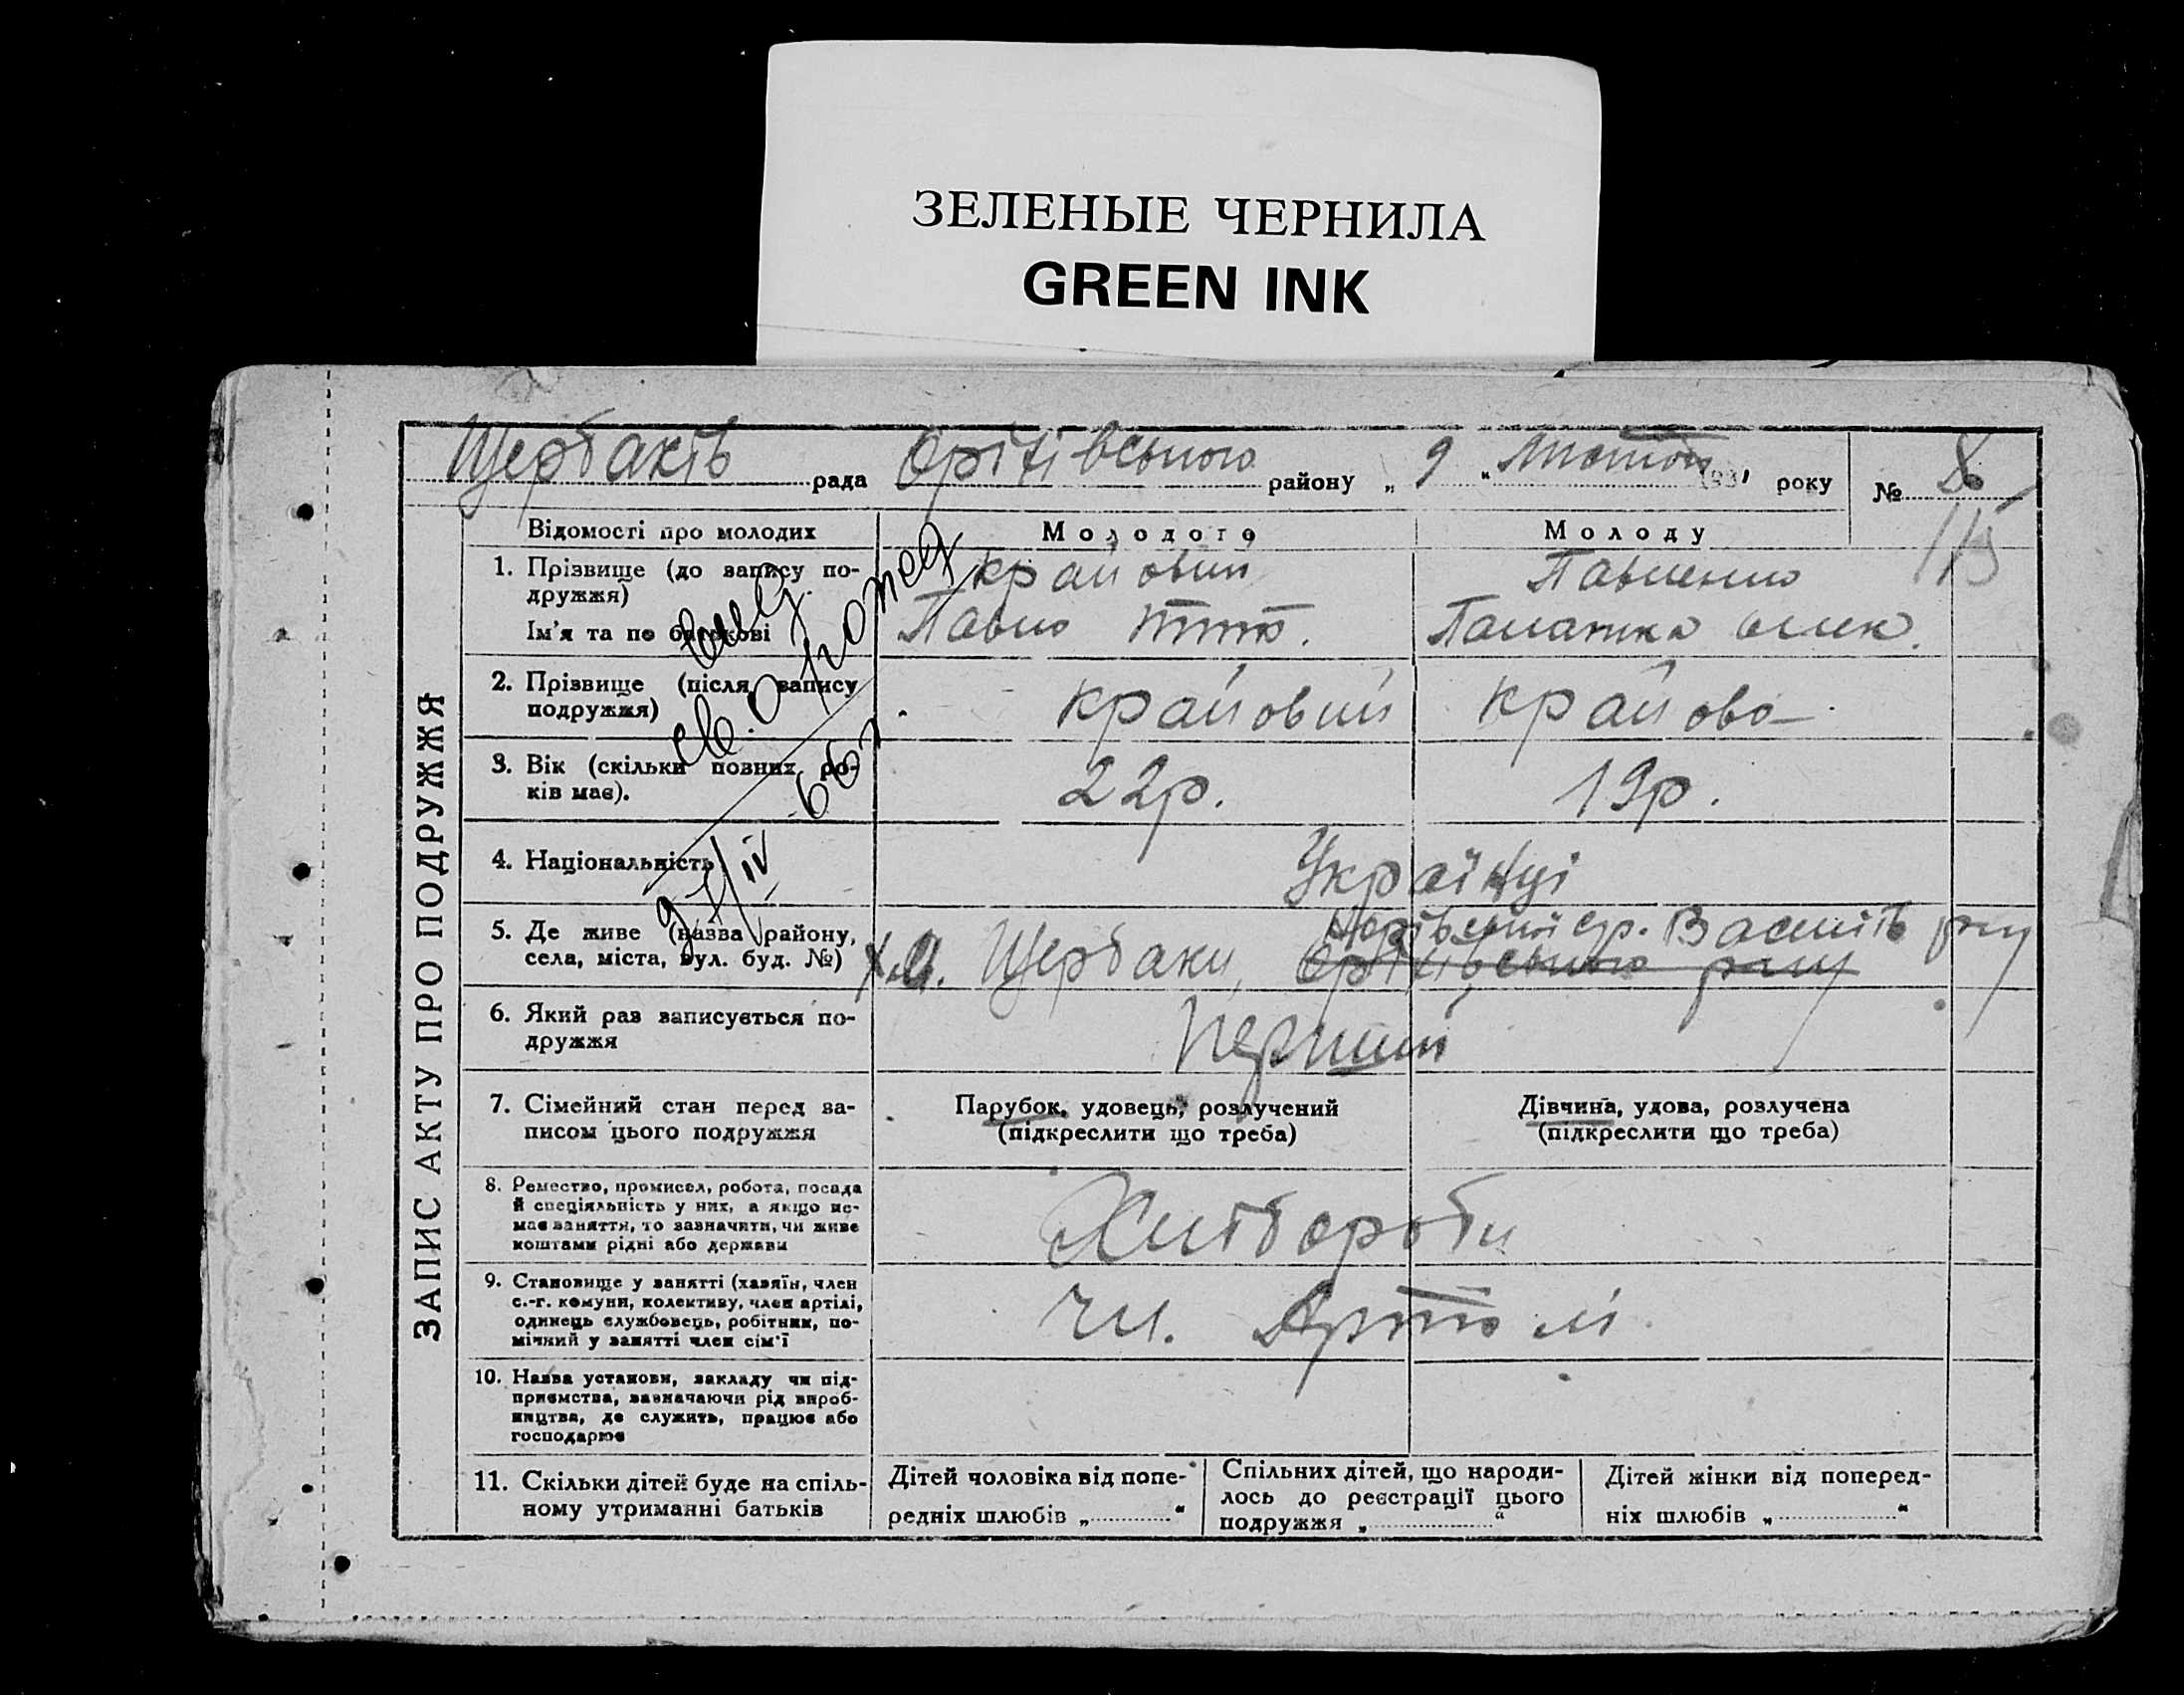 ЗЕЛЕНЫЕ ЧЕРНИЛА
GREEN INK
рада району „ 9 “ року №
115
ЗАПИС АКТУ ПРО ПОДРУЖЖЯ
Відомості про молодих Молодого Молоду
1. Прізвище (до запису по-
дружжя)
Крайовий Павленко
Ім'я та по батькові Павло
2. Прізвище (після запису
подружжя)
Крайовий Крайова
3. Вік (скільки повних ро-
ків має).
22р. 19р.
4. Національність Українці
5. Де живе (назва району,
села, міста, вул. буд. №)
Щербаки, Оріхівського р-ну
6. Який раз записується по-
дружжя
Перший
7. Сімейний стан перед за-
писом цього подружжя
Парубок, удовець, розлучений
(підкреслити що треба)
Дівчина, удова, розлучена
(підкреслити що треба)
8. Ремество, промисел, робота, посада
й спеціяльність у них, а якщо не-
має заняття, то зазначити, чи живе
коштами рідні або держави
Хлібороби
9. Становище у занятті (хазяїн, член
с.-г. комуни, колективу, член артілі,
одинець службовець, робітник, по-
мічний у занятті член сім'ї
чл. Артілі
10. Назва установи, закладу чи під-
приємства, зазначаючи рід вироб-
ництва, де служить, працює або
господарює
11. Скільки дітей буде на спіль-
ному утриманні батьків
Дітей чоловіка від попе-
редніх шлюбів „ “
Спільних дітей, що народи-
лось до реєстрації цього
подружжя „ “
Дітей жінки від поперед-
ніх шлюбів „ “